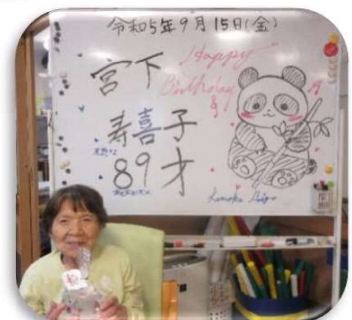 令和5年9月15日(金)
Happy
Birthday
宮下
寿喜子
89才